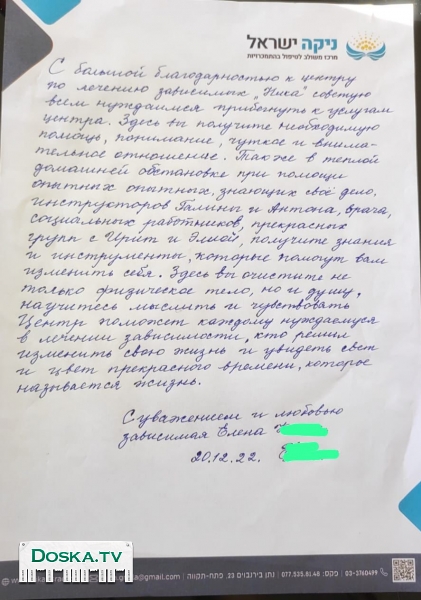 ניקה ישראל
מרכז משולב לטיפול בהתמכרויות
С большой благодарностью к центру
по лечению зависимых "Ника" советую
всем нуждаимся прибегнуть к услугам
центра. Здесь вы получите необходимую
помощь, понимание, чуткое и внима-
тельное отношение. Также в теплой
домашней обстановке при помощи
опытных опытных, знающих своё дело.
инструкторов Галины и Антона, врача,
социальных работников, прекрасных
групп с Ирит и Элией, получите знания
и инструменты, которые помогут вам
изменить себя. Здесь вы очистите не
только физическое тело, но и душу,
научитесь мыслить и чувствовать
Центр поможет каждому нуждаемуся
в лечении зависимости, кто решил
изменить свою жизнь и увидеть свет
и цвет прекрасного времени, которое
называется жизнь.
С уважением и любовью
зависимая Елена
20.12.22.
DOSKA.TV
@gmail.com | נתן בירנבוים 23, פתח-תקווה | פקס: 077.535.8148 | 03-3760499